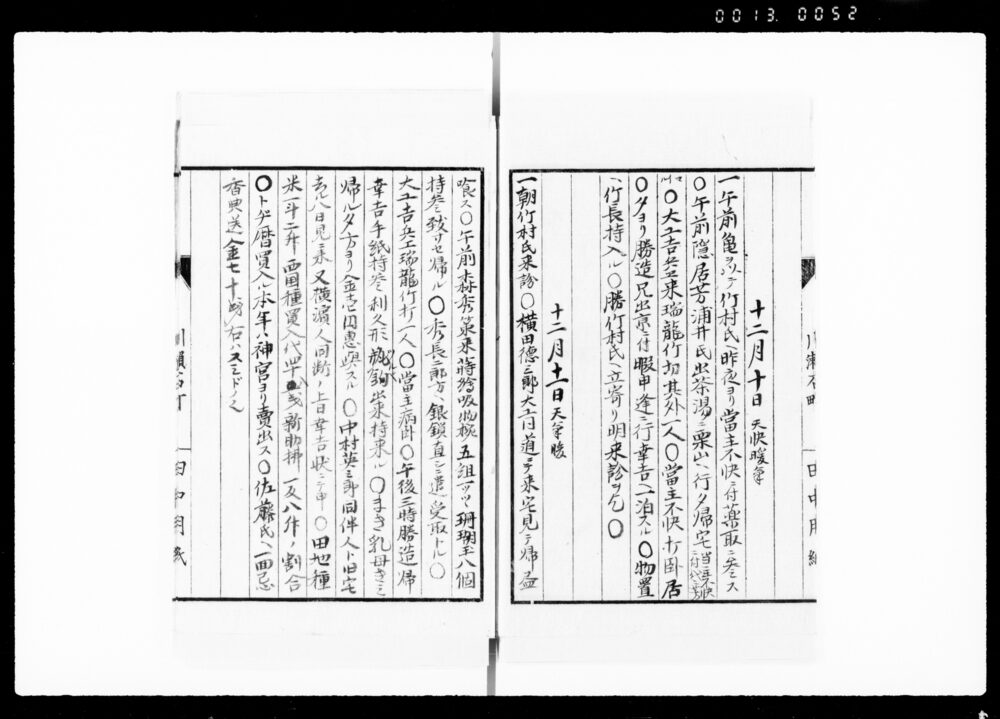 0013.0052
十二月十日 天快暖氣
一午前亀ヲソヘテ竹村氏ヘ昨夜ヨリ當主不快ニ付薬取ニ参ラス
〇午前隠居芳浦井氏出茶湯ニ栗山ヘ行夕帰宅
〇大工吉兵工来瑞龍竹切其外一人〇當主不快ニ付臥居
〇夕ヨリ勝造兄出京ニ付暇申逢ニ行幸吉ハ一泊スル〇物置
ヘ竹長持入ル〇勝竹村氏ヘ立寄リ明来診ヲ乞〇
十二月十一日 天氣暖
一朝竹村氏来診〇横田德三郎大工同道ニテ来宅見テ帰 益
喰ス〇午前森秀策来蒔繪吸物椀五組一ツヽ珊瑚玉八個
持参致サセ帰ル〇秀長二郎方ヘ銀鎖直シニ遣受取トル〇
大工吉兵工瑞龍竹打一人〇當主病臥〇午後三時勝造帰
幸吉手紙持参利久形瓶釣出来持来ル〇まき乳母きミ
帰ル夕方ヨリ金壱円惠與スル〇中村英三郎同伴人ト旧宅
去ル八日見ニ来又横濱ノ人同断ノ上日幸吉状ニテ申〇田地種
米一斗二升西國種買入代 新助拂 一反八升ノ割合
〇トヂ暦買入ル本年ハ神宮ヨリ賣出ス〇佐藤氏ヘ一周忌
香奠送金七十五銭右ハスミドノヘ
田中用紙